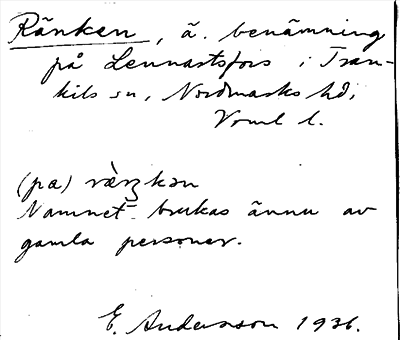 Ränken, ä. benämning
på Lennartsfors i Tran-
kils sn, Nordmarks hd,
Vrml l.
(pa) 
Namnet brukas ännu av
gamla personer.
E. Andersson 1936.